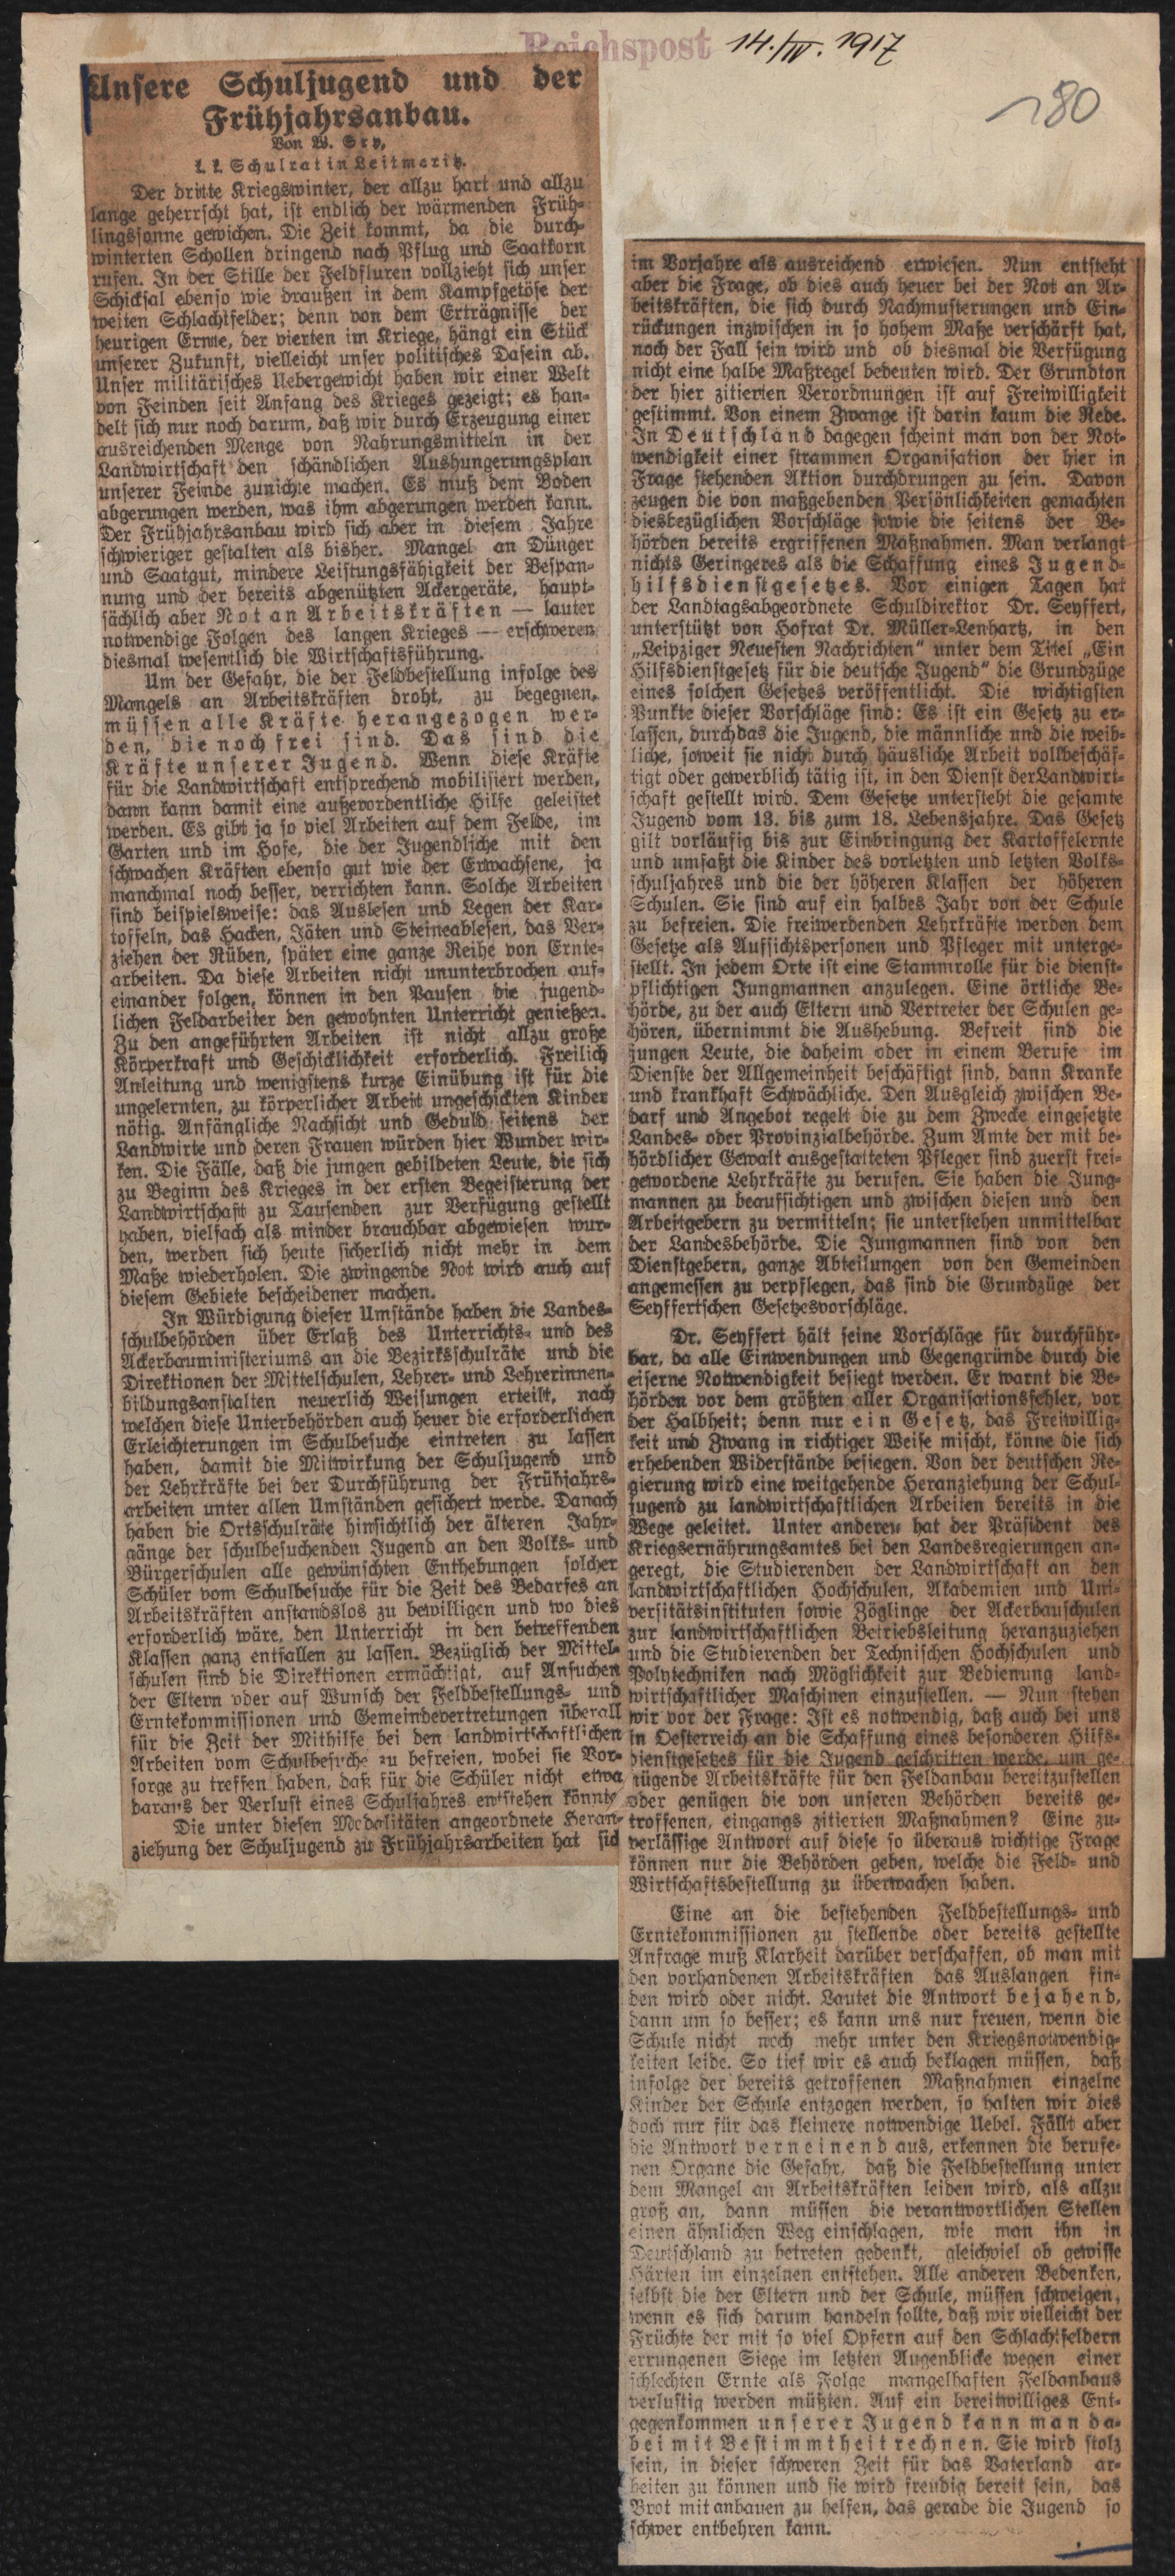 Reichspost 14./IV. 1917
180
Unsere Schuljugend und der
Frühjahrsanbau.
Von W.
k. k. Schulrat in Leitmeritz.
Der dritte Kriegswinter, der allzu hart und allzu
lange geherrscht hat, ist endlich der wärmenden Früh-
lingssonne gewichen. Die Zeit kommt, da die durch-
winterten Schollen dringend nach Pflug und Saatkorn
rufen. In der Stille der Feldfluren vollzieht sich unser
Schicksal ebenso wie draußen in dem Kampfgetöse der
weiten Schlachtfelder; denn von dem Erträgnisse der
heurigen Ernte, der vierten im Kriege, hängt ein Stück
unserer Zukunft, vielleicht unser politisches Dasein ab.
Unser militärisches Uebergewicht haben wir einer Welt
von Feinden seit Anfang des Krieges gezeigt; es han-
delt sich nur noch darum, daß wir durch Erzeugung einer
ausreichenden Menge von Nahrungsmitteln in der
Landwirtschaft den schändlichen Aushungerungsplan
unserer Feinde zunichte machen. Es muß dem Boden
abgerungen werden, was ihm abgerungen werden kann.
Der Frühjahrsanbau wird sich aber in diesem Jahre
schwieriger gestalten als bisher. Mangel an Dünger
und Saatgut, mindere Leistungsfähigkeit der Bespan-
nung und der bereits abgenützten Ackergeräte, haupt-
sächlich aber Not an Arbeitskräften — lauter
notwendige Folgen des langen Krieges — erschweren
diesmal wesentlich die Wirtschaftsführung.
Um der Gefahr, die der Feldbestellung infolge des
Mangels an Arbeitskräften droht, zu begegnen,
müssen alle Kräfte herangezogen wer-
den, die noch frei sind. Das sind die
Kräfte unserer Jugend. Wenn diese Kräfte
für die Landwirtschaft entsprechend mobilisiert werden,
dann kann damit eine außerordentliche Hilfe geleistet
werden. Es gibt ja so viel Arbeiten auf dem Felde, im
Garten und im Hofe, die der Jugendliche mit den
schwachen Kräften ebenso gut wie der Erwachsene, ja
manchmal noch besser, verrichten kann. Solche Arbeiten
sind beispielsweise: das Auslesen und Legen der Kar-
toffeln, das Hacken, Jäten und Steineablesen, das Ver-
ziehen der Rüben, später eine ganze Reihe von Ernte-
arbeiten. Da diese Arbeiten nicht ununterbrochen auf-
einander folgen, können in den Pausen die jugend-
lichen Feldarbeiter den gewohnten Unterricht genießen.
Zu den angeführten Arbeiten ist nicht allzu große
Körperkraft und Geschicklichkeit erforderlich. Freilich
Anleitung und wenigstens kurze Einübung ist für die
ungelernten, zu körperlicher Arbeit ungeschickten Kinder
nötig. Anfängliche Nachsicht und Geduld seitens der
Landwirte und deren Frauen würden hier Wunder wir-
ken. Die Fälle, daß die jungen gebildeten Leute, die sich
zu Beginn des Krieges in der ersten Begeisterung der
Landwirtschaft zu Tausenden zur Verfügung gestellt
haben, vielfach als minder brauchbar abgewiesen wur-
den, werden sich heute sicherlich nicht mehr in dem
Maße wiederholen. Die zwingende Not wird auch auf
diesem Gebiete bescheidener machen.
In Würdigung dieser Umstände haben die Landes-
schulbehörden über Erlaß des Unterrichts- und des
Ackerbauministeriums an die Bezirksschulräte und die
Direktionen der Mittelschulen, Lehrer- und Lehrerinnen-
bildungsanstalten neuerlich Weisungen erteilt, nach
welchen diese Unterbehörden auch heuer die erforderlichen
Erleichterungen im Schulbesuche eintreten zu lassen
haben, damit die Mitwirkung der Schuljugend und
der Lehrkräfte bei der Durchführung der Frühjahrs-
arbeiten unter allen Umständen gesichert werde. Danach
haben die Ortsschulräte hinsichtlich der älteren Jahr-
gänge der schulbesuchenden Jugend an den Volks- und
Bürgerschulen alle gewünschten Enthebungen solcher
Schüler vom Schulbesuche für die Zeit des Bedarfes an
Arbeitskräften anstandslos zu bewilligen und wo dies
erforderlich wäre, den Unterricht in den betreffenden
Klassen ganz entfallen zu lassen. Bezüglich der Mittel-
schulen sind die Direktionen ermächtigt, auf Ansuchen
der Eltern oder auf Wunsch der Feldbestellungs- und
Erntekommissionen und Gemeindevertretungen überall
für die Zeit der Mithilfe bei den landwirtschaftlichen
Arbeiten vom Schulbesuche zu befreien, wobei sie Vor-
sorge zu treffen haben, daß für die Schüler nicht etwa
daraus der Verlust eines Schuljahres entstehen könnte.
Die unter diesen Modalitäten angeordnete Heran-
ziehung der Schuljugend zu Frühjahrsarbeiten hat sich
im Vorjahre als ausreichend erwiesen. Nun entsteht
aber die Frage, ob dies auch heuer bei der Not an Ar-
beitskräften, die sich durch Nachmusterungen und Ein-
rückungen inzwischen in so hohem Maße verschärft hat,
noch der Fall sein wird und ob diesmal die Verfügung
nicht eine halbe Maßregel bedeuten wird. Der Grundton
der hier zitierten Verordnungen ist auf Freiwilligkeit
gestimmt. Von einem Zwange ist darin kaum die Rede.
In Deutschland dagegen scheint man von der Not-
wendigkeit einer strammen Organisation der hier in
Frage stehenden Aktion durchdrungen zu sein. Davon
zeugen die von maßgebenden Persönlichkeiten gemachten
diesbezüglichen Vorschläge sowie die seitens der Be-
hörden bereits ergriffenen Maßnahmen. Man verlangt
nichts Geringeres als die Schaffung eines Jugend-
hilfsdienstgesetzes. Vor einigen Tagen hat
der Landtagsabgeordnete Schuldirektor Dr. Seyffert,
unterstützt von Hofrat Dr. Müller-Lenhartz, in den
„Leipziger Neuesten Nachrichten“ unter dem Titel „Ein
Hilfsdienstgesetz für die deutsche Jugend“ die Grundzüge
eines solchen Gesetzes veröffentlicht. Die wichtigsten
Punkte dieser Vorschläge sind: Es ist ein Gesetz zu er-
lassen, durch das die Jugend, die männliche und die weib-
liche, soweit sie nicht durch häusliche Arbeit vollbeschäf-
tigt oder gewerblich tätig ist, in den Dienst der Landwirt-
schaft gestellt wird. Dem Gesetze untersteht die gesamte
Jugend vom 13. bis zum 18. Lebensjahre. Das Gesetz
gilt vorläufig bis zur Einbringung der Kartoffelernte
und umfaßt die Kinder des vorletzten und letzten Volks-
schuljahres und die der höheren Klassen der höheren
Schulen. Sie sind auf ein halbes Jahr von der Schule
zu befreien. Die freiwerdenden Lehrkräfte werden dem
Gesetze als Aufsichtspersonen und Pfleger mit unterge-
stellt. In jedem Orte ist eine Stammrolle für die dienst-
pflichtigen Jungmannen anzulegen. Eine örtliche Be-
hörde, zu der auch Eltern und Vertreter der Schulen ge-
hören, übernimmt die Aushebung. Befreit sind die
jungen Leute, die daheim oder in einem Berufe im
Dienste der Allgemeinheit beschäftigt sind, dann Kranke
und krankhaft Schwächliche. Den Ausgleich zwischen Be-
darf und Angebot regelt die zu dem Zwecke eingesetzte
Landes- oder Provinzialbehörde. Zum Amte der mit be-
hördlicher Gewalt ausgestatteten Pfleger sind zuerst frei-
gewordene Lehrkräfte zu berufen. Sie haben die Jung-
mannen zu beaufsichtigen und zwischen diesen und den
Arbeitgebern zu vermitteln; sie unterstehen unmittelbar
der Landesbehörde. Die Jungmannen sind von den
Dienstgebern, ganze Abteilungen von den Gemeinden
angemessen zu verpflegen, das sind die Grundzüge der
Seyffertschen Gesetzesvorschläge.
Dr. Seyffert hält seine Vorschläge für durchführ-
bar, da alle Einwendungen und Gegengründe durch die
eiserne Notwendigkeit besiegt werden. Er warnt die Be-
hörden vor dem größten aller Organisationsfehler, vor
der Halbheit; denn nur ein Gesetz, das Freiwillig-
keit und Zwang in richtiger Weise mischt, könne die sich
erhebenden Widerstände besiegen. Von der deutschen Re-
gierung wird eine weitgehende Heranziehung der Schul-
jugend zu landwirtschaftlichen Arbeiten bereits in die
Wege geleitet. Unter anderen hat der Präsident des
Kriegsernährungsamtes bei den Landesregierungen an-
geregt, die Studierenden der Landwirtschaft an den
landwirtschaftlichen Hochschulen, Akademien und Uni-
versitätsinstituten sowie Zöglinge der Ackerbauschulen
zur landwirtschaftlichen Betriebsleitung heranzuziehen
und die Studierenden der Technischen Hochschulen und
Polytechniken nach Möglichkeit zur Bedienung land-
wirtschaftlicher Maschinen einzustellen. — Nun stehen
wir vor der Frage: Ist es notwendig, daß auch bei uns
in Oesterreich an die Schaffung eines besonderen Hilfs-
dienstgesetzes für die Jugend geschritten werde, um ge-
nügende Arbeitskräfte für den Feldanbau bereitzustellen
oder genügen die von unseren Behörden bereits ge-
troffenen, eingangs zitierten Maßnahmen? Eine zu-
verlässige Antwort auf diese so überaus wichtige Frage
können nur die Behörden geben, welche die Feld- und
Wirtschaftsbestellung zu überwachen haben.
Eine an die bestehenden Feldbestellungs- und
Erntekommissionen zu stellende oder bereits gestellte
Anfrage muß Klarheit darüber verschaffen, ob man mit
den vorhandenen Arbeitskräften das Auslangen fin-
den wird oder nicht. Lautet die Antwort bejahend,
dann um so besser; es kann uns nur freuen, wenn die
Schule nicht noch mehr unter den Kriegsnotwendig-
keiten leide. So tief wir es auch beklagen müssen, daß
infolge der bereits getroffenen Maßnahmen einzelne
Kinder der Schule entzogen werden, so halten wir dies
doch nur für das kleinere notwendige Uebel. Fällt aber
die Antwort verneinend aus, erkennen die berufe-
nen Organe die Gefahr, daß die Feldbestellung unter
dem Mangel an Arbeitskräften leiden wird, als allzu
groß an, dann müssen die verantwortlichen Stellen
einen ähnlichen Weg einschlagen, wie man ihn in
Deutschland zu betreten gedenkt, gleichviel ob gewisse
Härten im einzelnen entstehen. Alle anderen Bedenken,
selbst die der Eltern und der Schule, müssen schweigen,
wenn es sich darum handeln sollte, daß wir vielleicht der
Früchte der mit so viel Opfern auf den Schlachtfeldern
errungenen Siege im letzten Augenblicke wegen einer
schlechten Ernte als Folge mangelhaften Feldanbaus
verlustig werden müßten. Auf ein bereitwilliges Ent-
gegenkommen unserer Jugend kann man da-
bei mit Bestimmtheit rechnen. Sie wird stolz
sein, in dieser schweren Zeit für das Vaterland ar-
beiten zu können und sie wird freudig bereit sein, das
Brot mit anbauen zu helfen, das gerade die Jugend so
schwer entbehren kann.